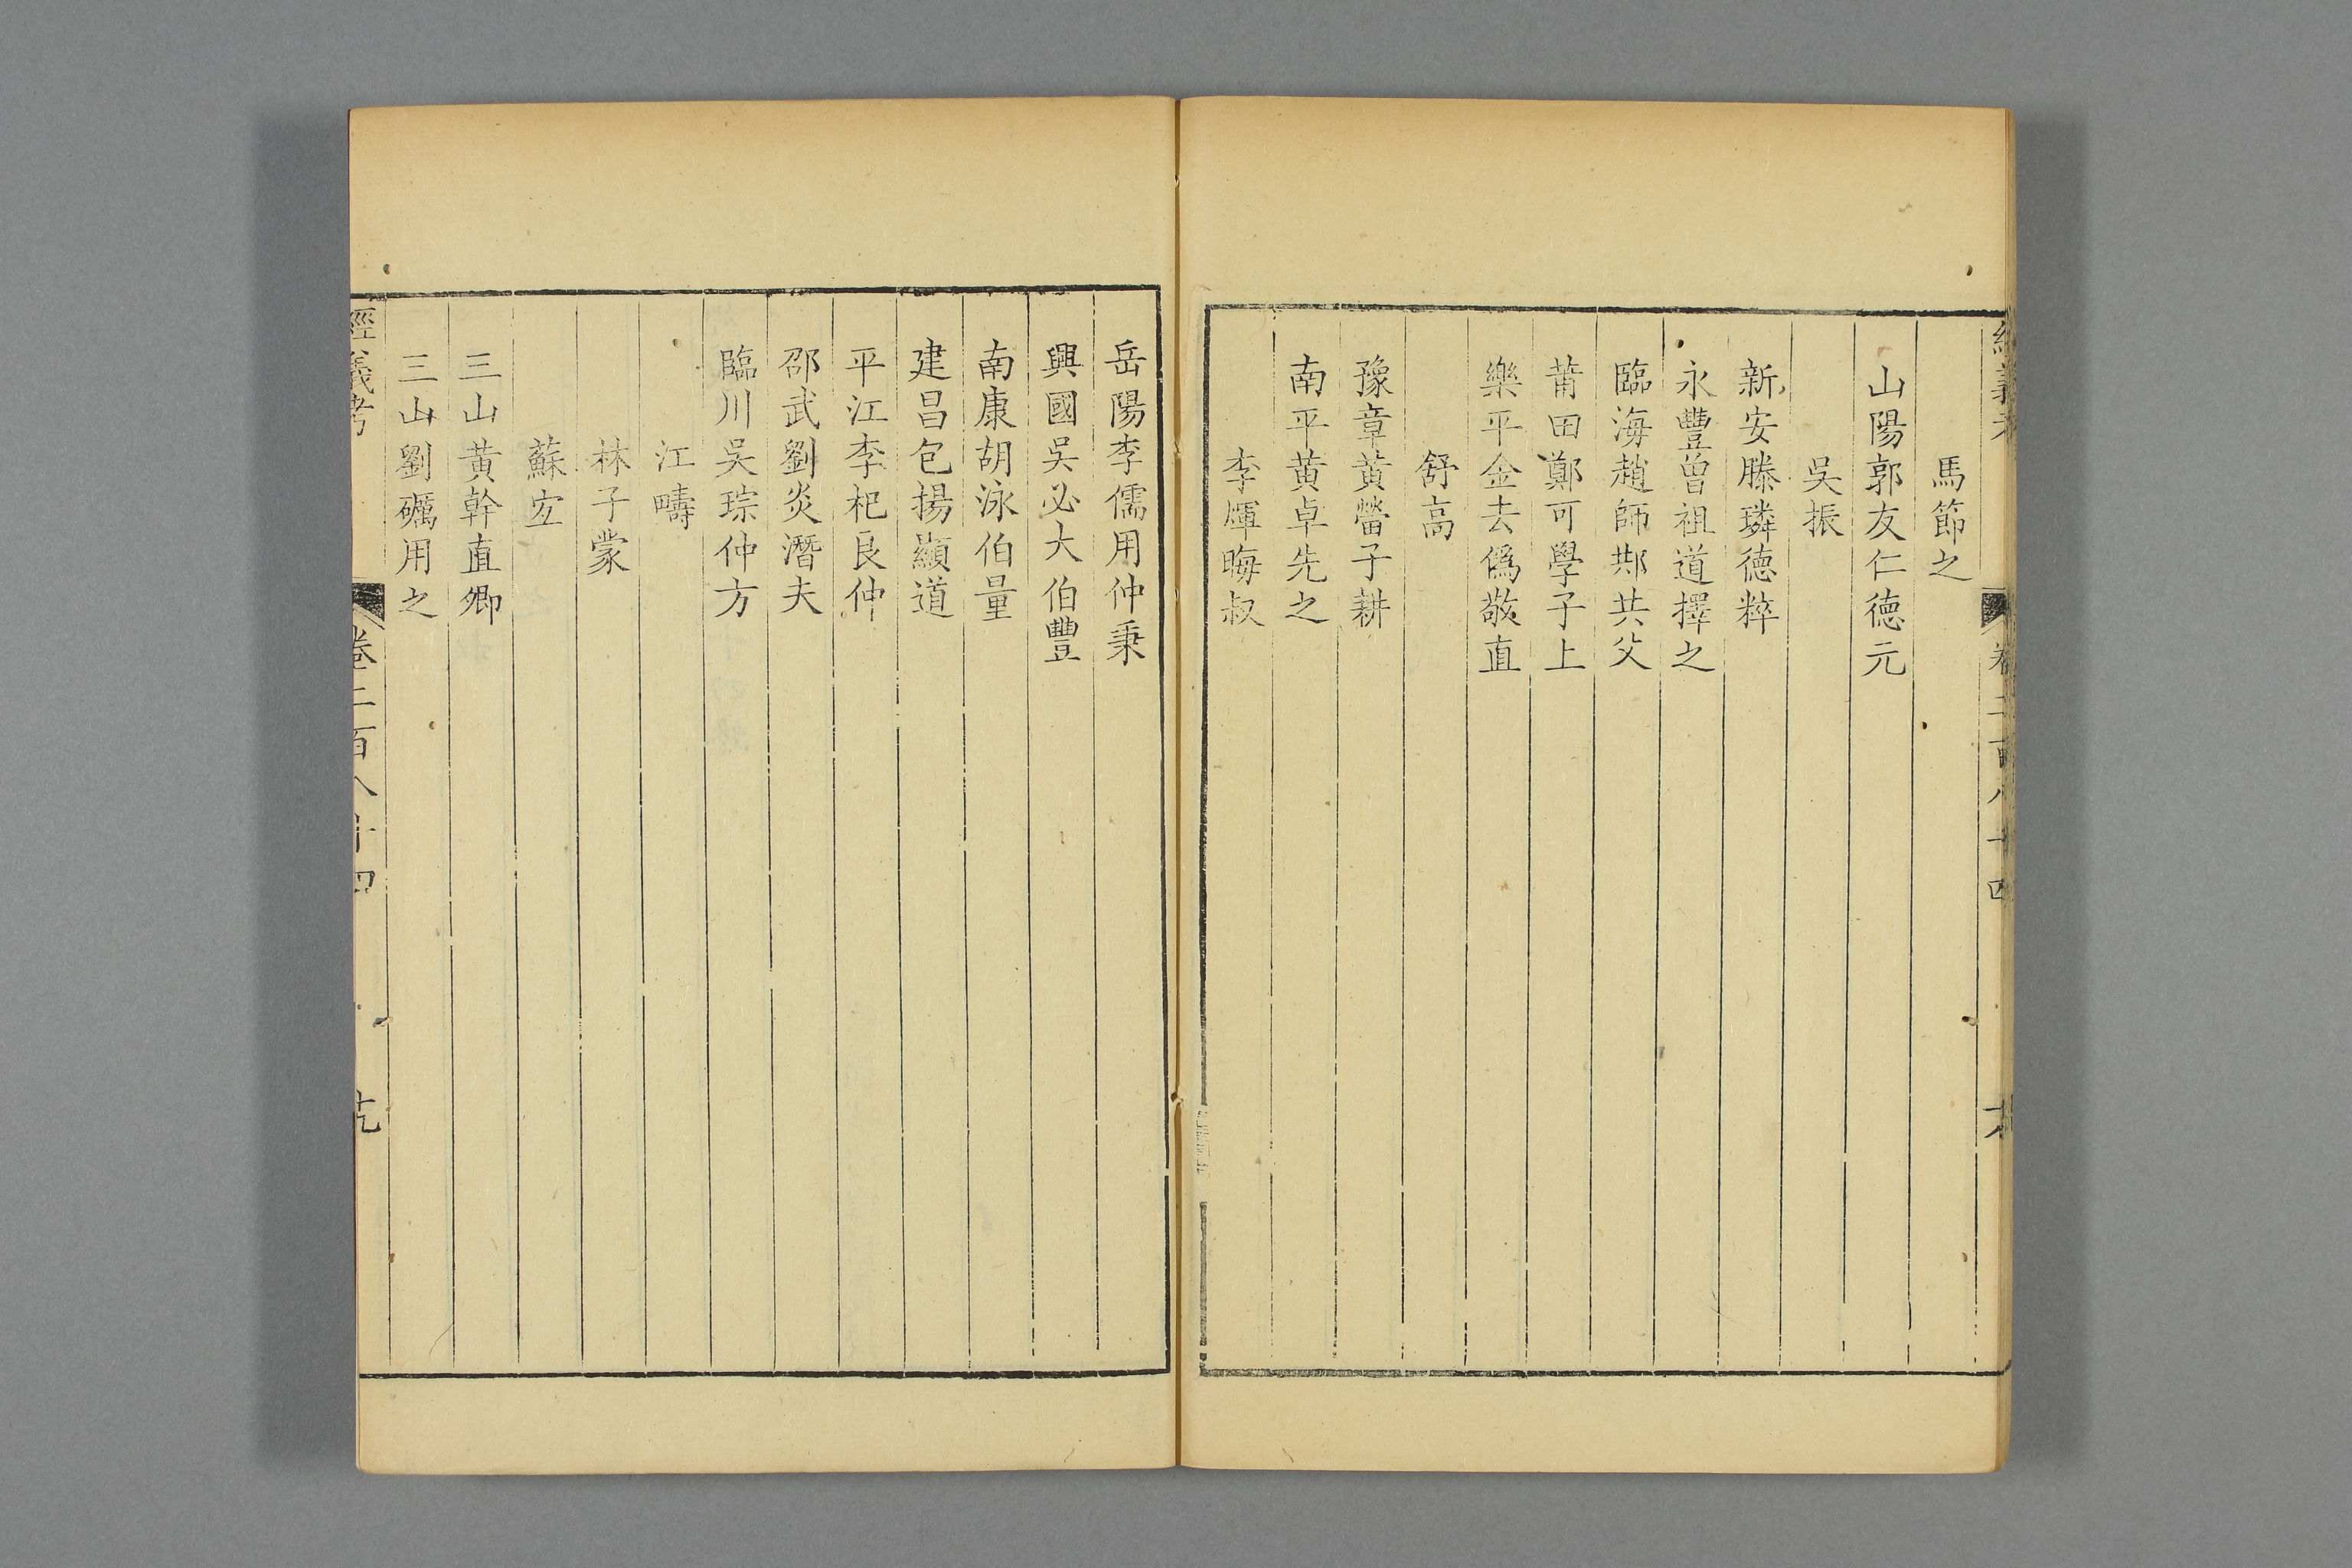 經義考
卷二百八十四
馬節之
山陽郭友仁德元
吳振
新安滕璘德粹
永豐曾祖道擇之
臨海趙師䢼共父
莆田鄭可學子上
樂平金去僞敬直
舒高
豫章黃㽦子耕
南平黃卓先之
李煇晦叔
岳陽李儒用仲秉
興國吳必大伯豐
南康胡泳伯量
建昌包揚顯道
平江李杞良仲
邵武劉炎潛夫
臨川吳琮仲方
江疇
林子蒙
蘇宜
三山黃幹直卿
三山劉礪用之
經義考
卷二百八十四